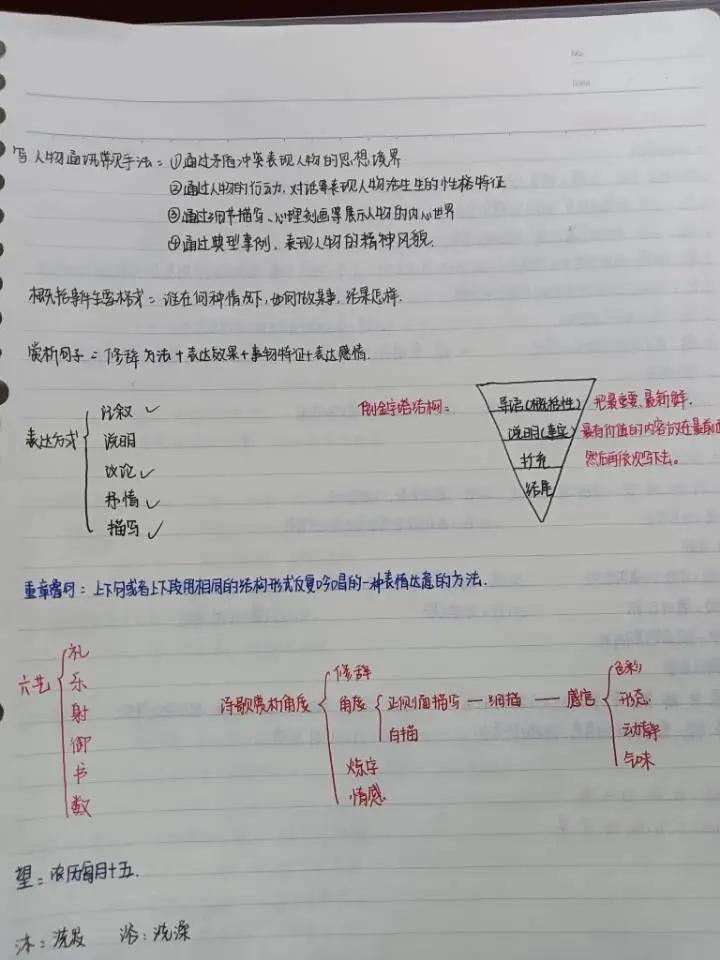 No.
Date
写人物通讯常见手法：①通过矛盾冲突表现人物的思想境界
②通过人物的行动，对话等表现人物活生生的性格特征
③通过细节描写、心理刻画等展示人物的内心世界
④通过典型事例，表现人物的精神风貌.
概括事件主要格式：谁在何种情况下，如何做某事，结果怎样.
赏析句子：修辞方法+表达效果+事物特征+表达感情.
表达方式
记叙 ✓
说明
议论 ✓
抒情 ✓
描写 ✓
倒金字塔结构：
导语(概括性) 把最重要、最新鲜、
说明(事实) 最有价值的内容放在最前面
补充 然后再依次写下去。
结尾
重章叠句：上下句或者上下段用相同的结构形式反复吟唱的一种表情达意的方法.
六艺
礼
乐
射
御
书
数
诗歌赏析角度
修辞
角度 正侧面描写 — 细描 — 感官
白描
炼字
情感
色彩
形态
动静
气味
望：农历每月十五.
沐：洗发 浴：洗澡